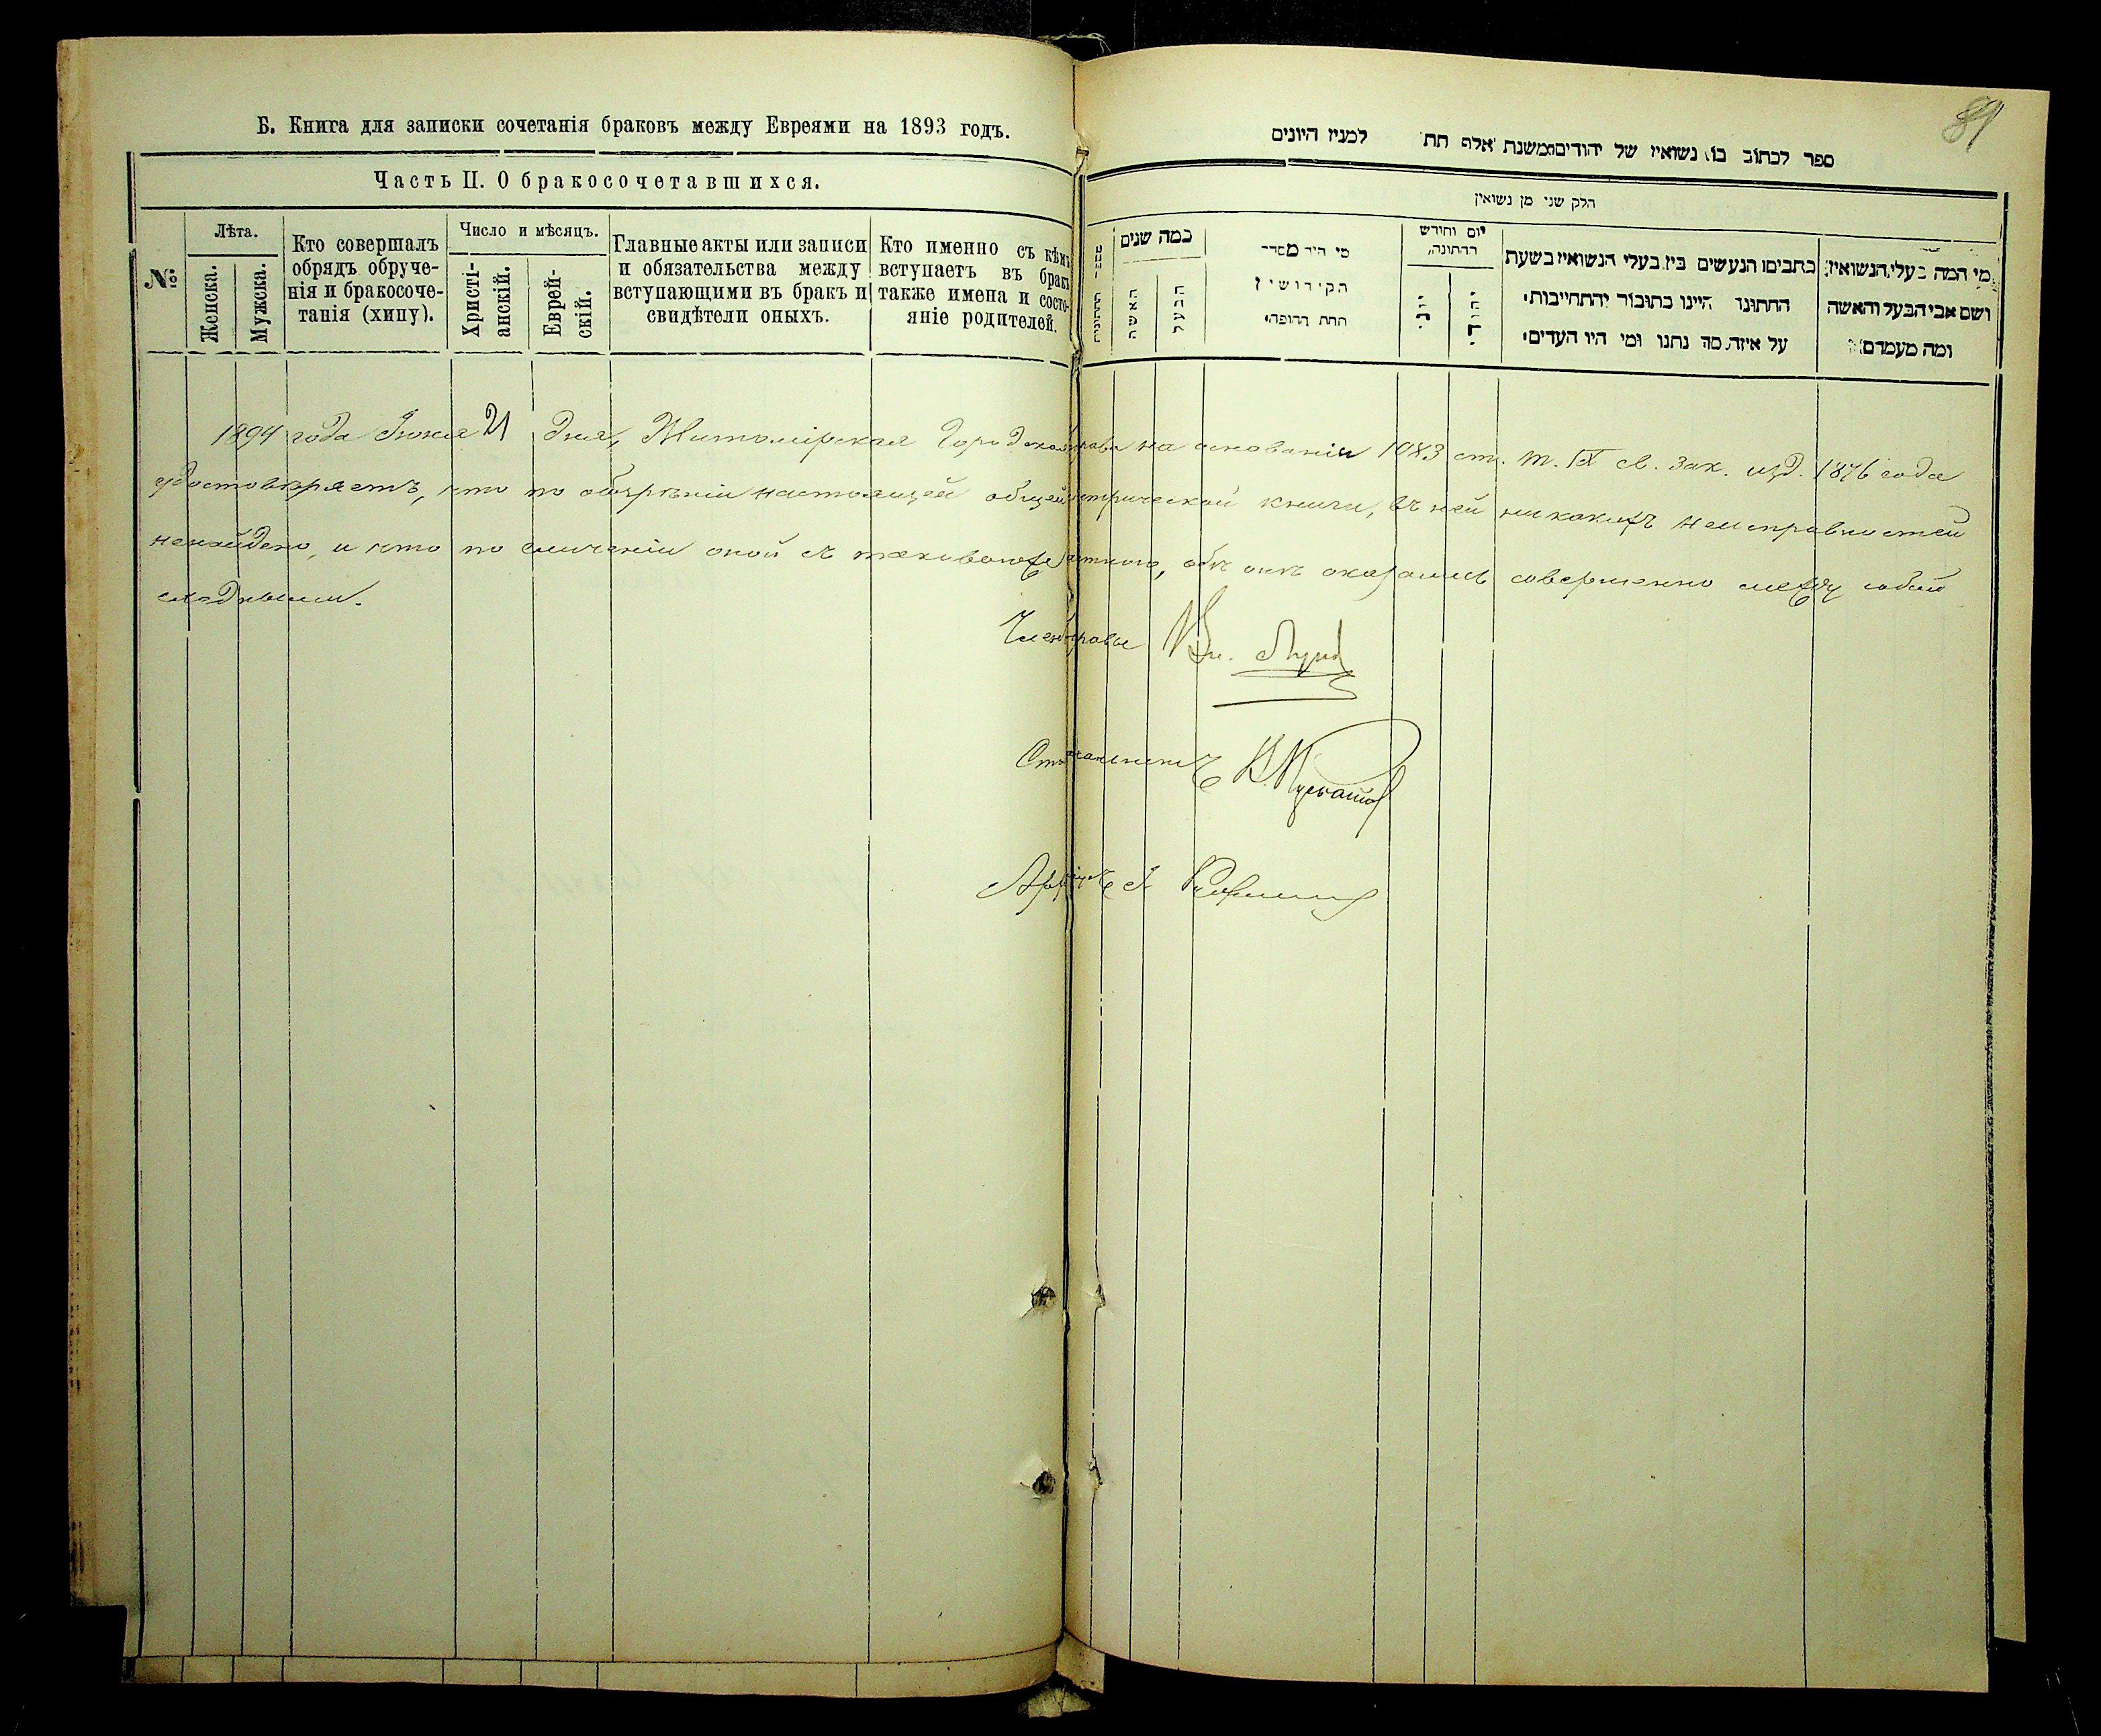 Б. Книга для записки сочетанія браковъ между Евреями на 1893 годъ.
Часть II. О бракосочетавшихся.
№
Лѣта.
Женска.
Мужска.
Кто совершалъ
обрядъ обруче-
нія и бракосоче-
танія (хипу).
Число и мѣсяцъ.
Христі-
анскій.
Еврей-
скій.
Главные акты или записи
и обязательства между
вступающими въ бракъ и
свидѣтели оныхъ.
Кто именно съ кѣмъ
вступаетъ въ бракъ
также имена и состо-
яніе родителей.
89
ספר לכתוב בו נשואין של יהודים משנת אלף תת למנין היונים
חלק שני מן נשואין
כמה שנים
האשה
הבעל
מי היה מסדר
הקידושין
תחת החופה
יום וחודש
החתונה
יוני
יהודי
כתבים הנעשים בין בעלי הנשואין בשעת
החתונה היינו כתובות והתחייבות
על איזה סך נתנו ומי היו העדים
מי המה בעלי הנשואין
ושם אבי הבעל והאשה
ומה מעמדם
1894 года Іюня 21 дня, Житомірская Городская управа на основаніи 1083 ст. т. IX св. зак. изд. 1876 года
удостовѣряетъ, что по обозрѣніи настоящей общей метрической книги, въ ней никакихъ неисправностей
ненайдено, и что по сличеніи оной съ таковою же, обѣ онѣ оказались совершенно между собой
сходными.
Членъ управы